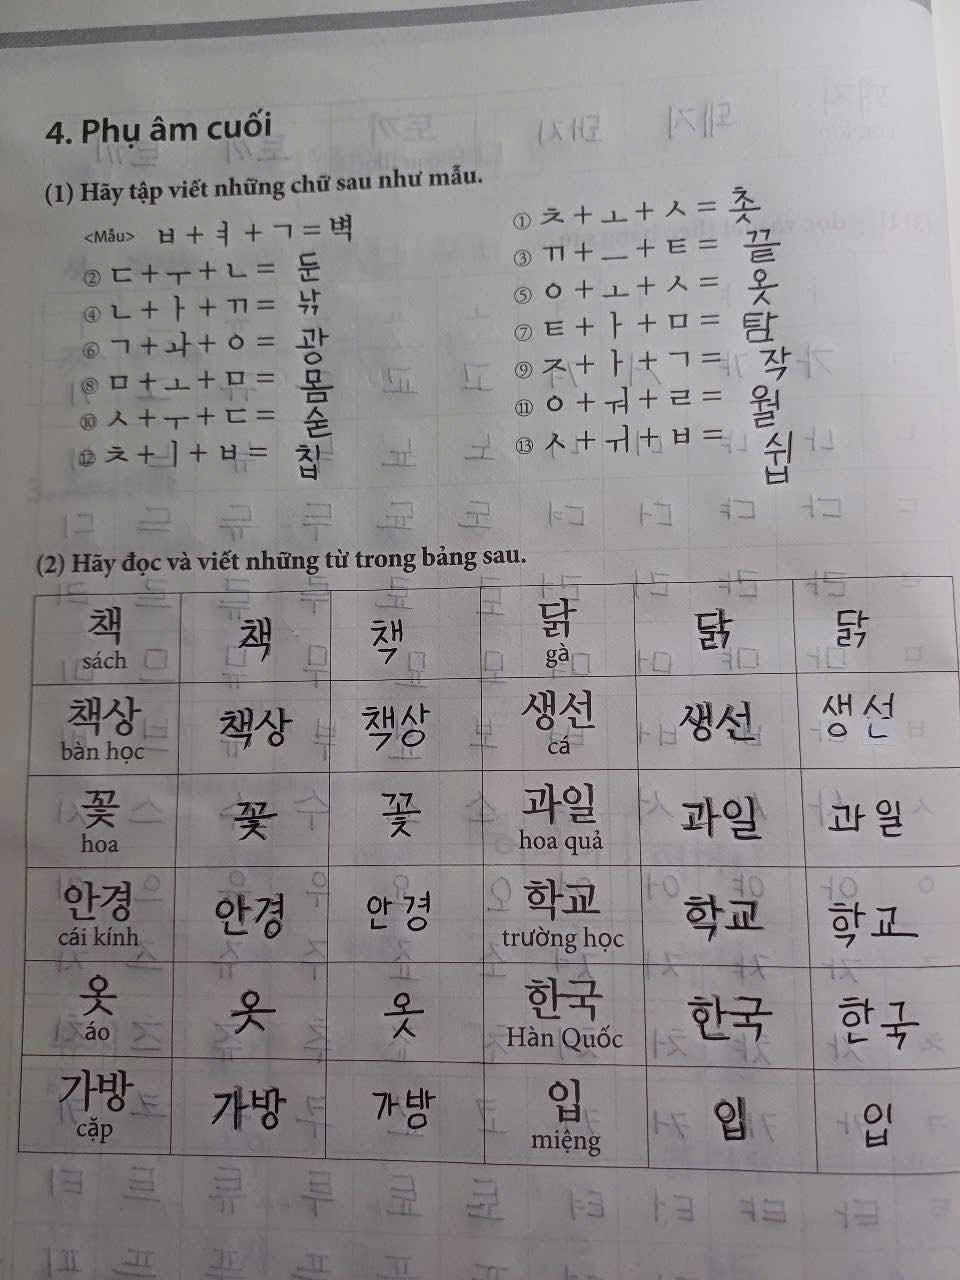 4. Phụ âm cuối
(1) Hãy tập viết những chữ sau như mẫu.
<Mẫu> ㅂ + ㅕ + ㄱ = 벽
① ㅊ + ㅗ + ㅅ = 촛
② ㄷ + ㅜ + ㄴ = 둔
③ ㄲ + ㅡ + ㅌ = 끝
④ ㄴ + ㅏ + ㄲ = 낚
⑤ ㅇ + ㅗ + ㅅ = 옷
⑥ ㄱ + ㅘ + ㅇ = 광
⑦ ㅌ + ㅏ + ㅁ = 탐
⑧ ㅁ + ㅗ + ㅁ = 몸
⑨ ㅈ + ㅏ + ㄱ = 작
⑩ ㅅ + ㅜ + ㄷ = 숟
⑪ ㅇ + ㅝ + ㄹ = 월
⑫ ㅊ + ㅣ + ㅂ = 칩
⑬ ㅅ + ㅟ + ㅂ = 쉽
(2) Hãy đọc và viết những từ trong bảng sau.
책 책 책 닭 닭 닭
sách gà
책상 책상 책상 생선 생선 생선
bàn học cá
꽃 꽃 꽃 과일 과일 과일
hoa hoa quả
안경 안경 안경 학교 학교 학교
cái kính trường học
옷 옷 옷 한국 한국 한국
áo Hàn Quốc
가방 가방 가방 입 입 입
cặp miệng